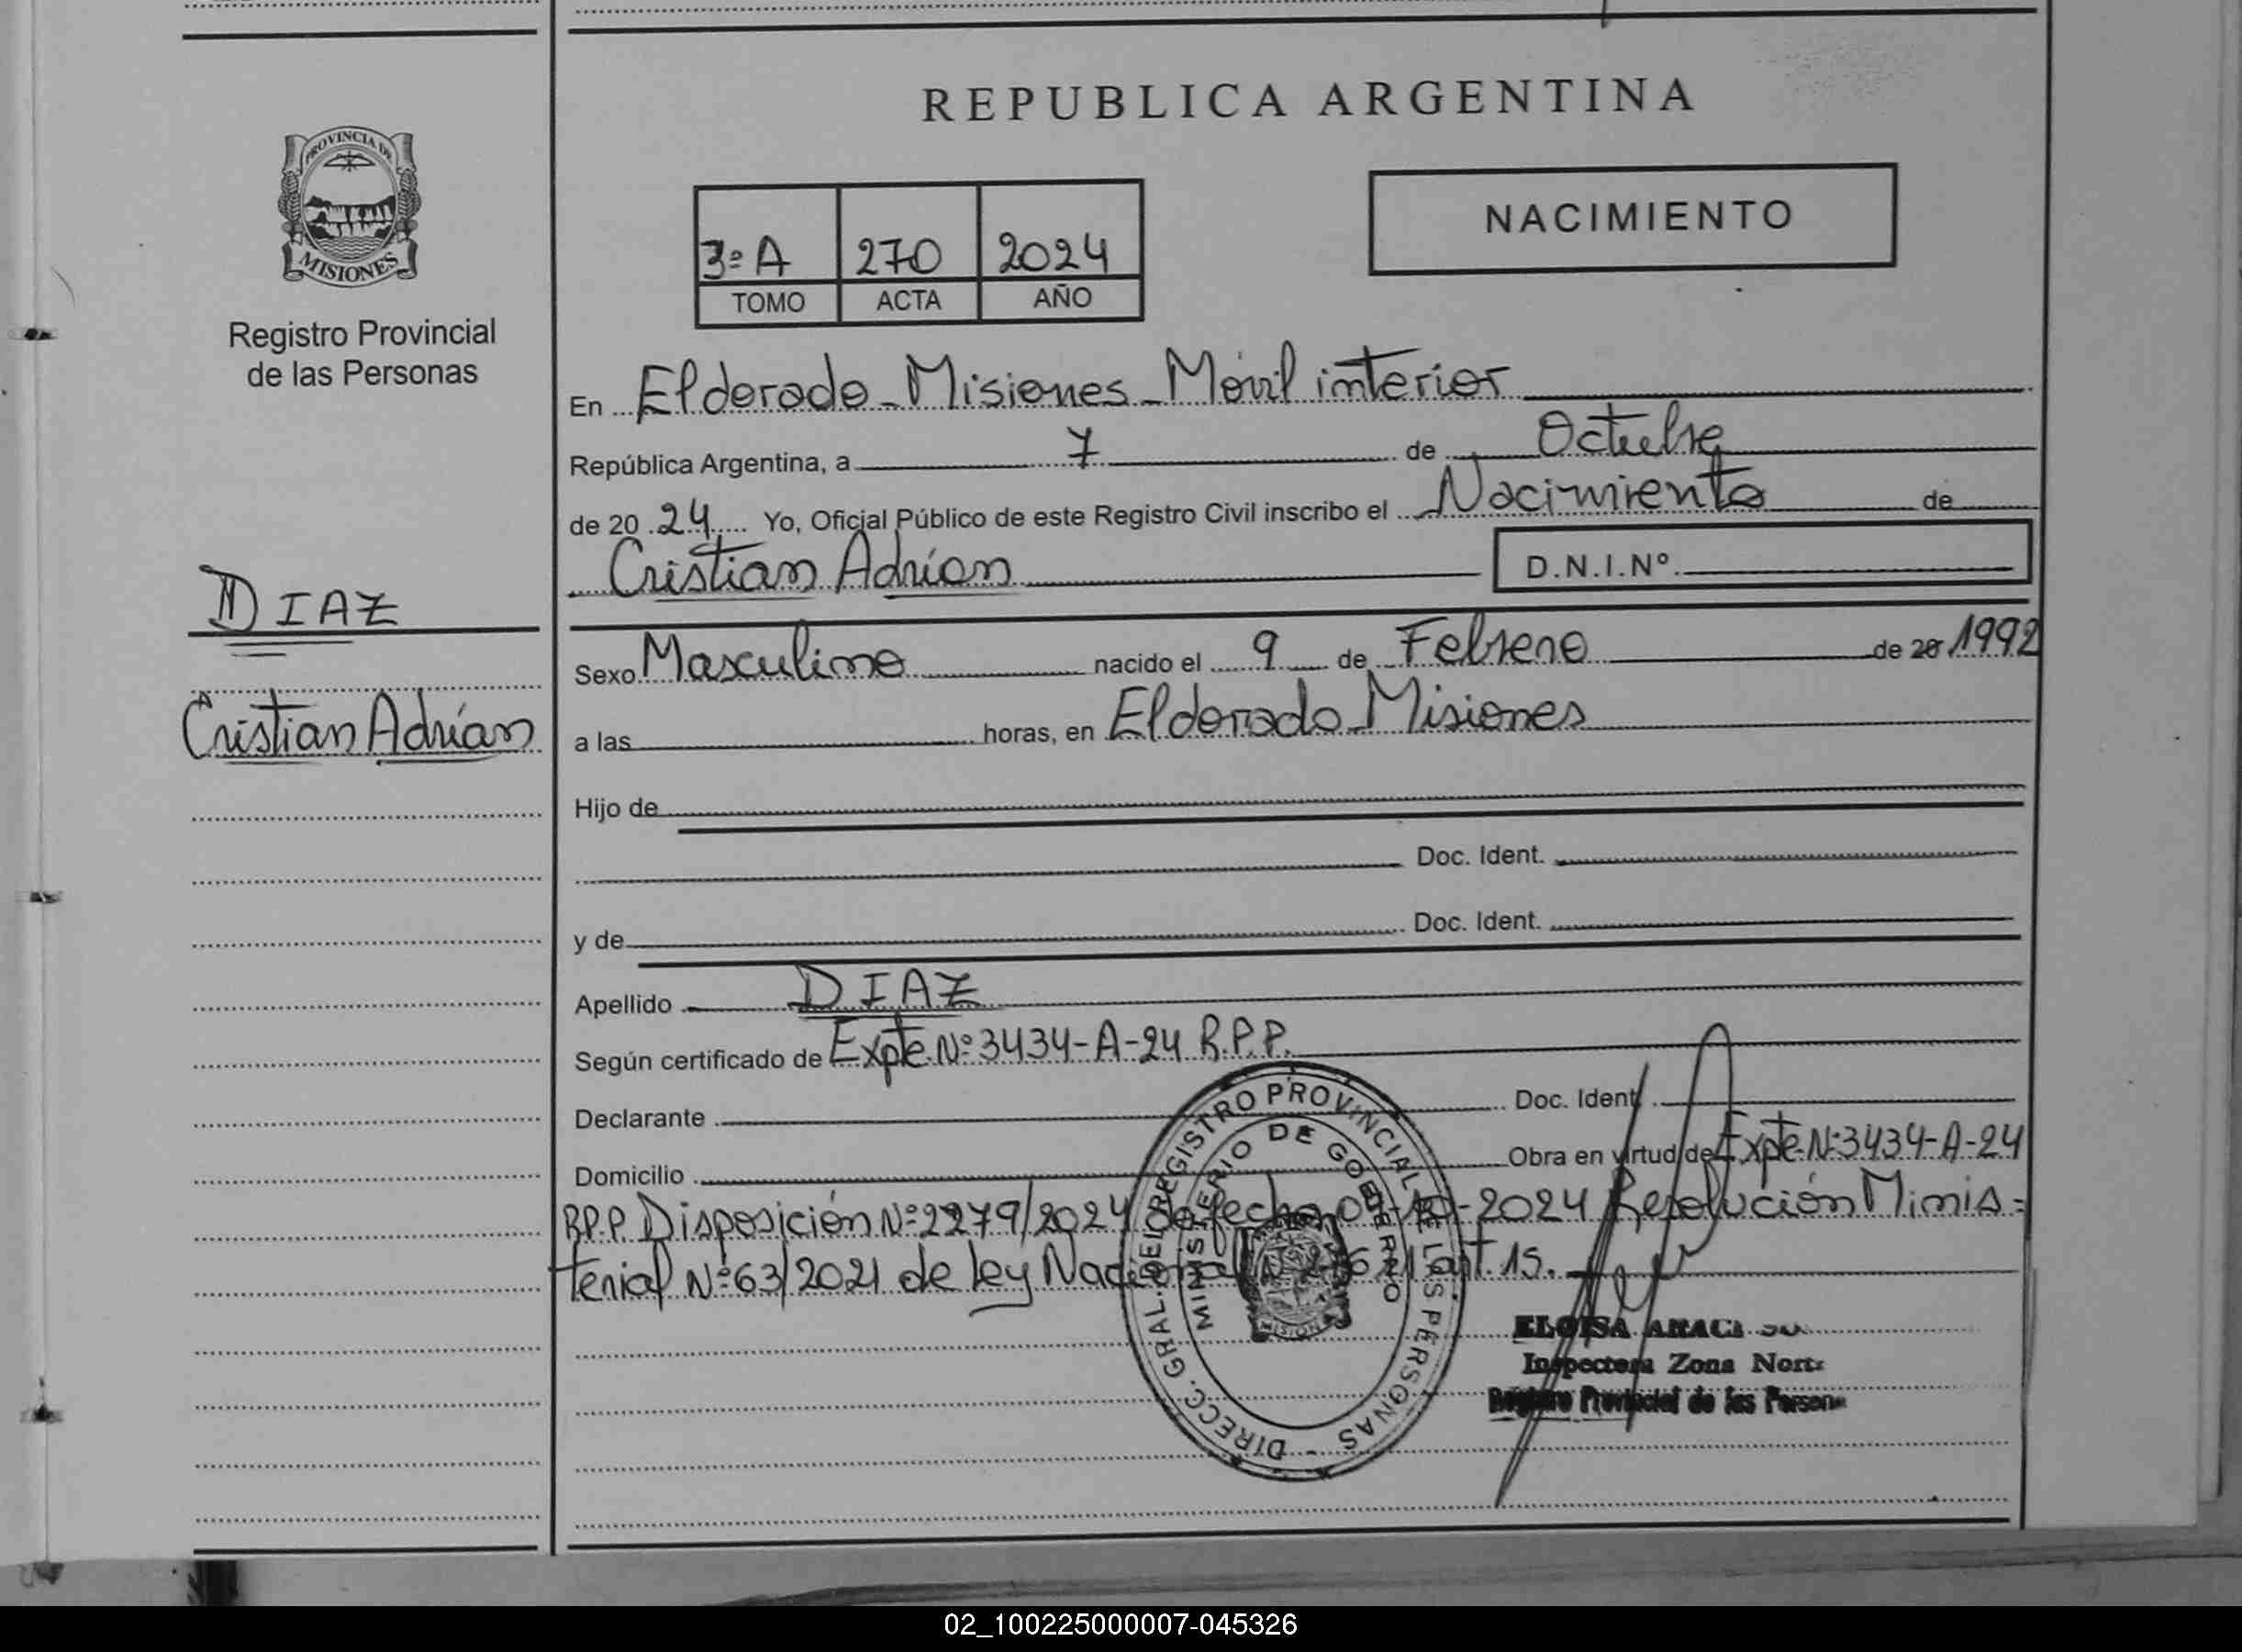 REPUBLICA ARGENTINA
PROVINCIA DE
MISIONES
Registro Provincial
de las Personas
3º A 270 2024
TOMO ACTA AÑO
NACIMIENTO
En Eldorado - Misiones - Móvil interior
República Argentina, a 7 de Octubre
de 20 24 Yo, Oficial Público de este Registro Civil inscribo el Nacimiento de
Cristian Adrián D.N.I.Nº.
DIAZ
Cristian Adrián
Sexo Masculino nacido el 9 de Febrero de 20 1992
a las horas, en Eldorado - Misiones
Hijo de
Doc. Ident.
y de Doc. Ident.
Apellido DIAZ
Según certificado de Expte. Nº 3434-A-24 R.P.P.
Declarante Doc. Ident.
Domicilio Obra en virtud de Expte. Nº 3434-A-24
R.P.P. Disposición Nº 2279/2024 de fecha -2024 Resolución Minis=
terial Nº 63/2021 de ley Nacional art. 15.
DIRECC. GRAL. DEL REGISTRO PROVINCIAL DE LAS PERSONAS -
MINISTERIO DE GOBIERNO
ELOISA
Inspectora Zona Norte
Registro Provincial de las Persona
02_100225000007-045326